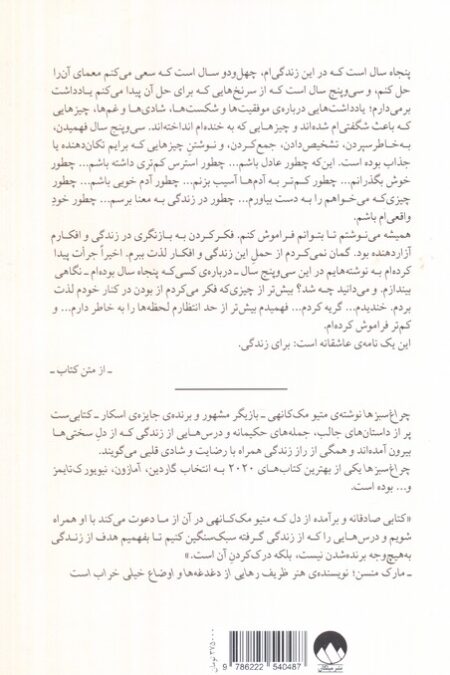 پنجاه سال است که در این زندگی‌ام، چهل‌ودو سال است که سعی می‌کنم معمای آن‌را
حل کنم، و سی‌وپنج سال است که از سرنخ‌هایی که برای حل آن پیدا می‌کنم یادداشت
برمی‌دارم؛ یادداشت‌هایی درباره‌ی موفقیت‌ها و شکست‌ها، شادی‌ها و غم‌ها، چیزهایی
که باعث شگفتی‌ام شده‌اند و چیزهایی که به خنده‌ام انداخته‌اند. سی‌وپنج سال فهمیدن،
به‌خاطرسپردن، تشخیص‌دادن، جمع‌کردن، و نوشتنِ چیزهایی که برایم تکان‌دهنده یا
جذاب بوده است. این‌که چطور عادل باشم... چطور استرس کم‌تری داشته باشم... چطور
خوش بگذرانم... چطور کم‌تر به آدم‌ها آسیب بزنم... چطور آدم خوبی باشم... چطور
چیزی‌که می‌خواهم را به دست بیاورم... چطور در زندگی به معنا برسم... چطور خودِ
واقعی‌ام باشم.
همیشه می‌نوشتم تا بتوانم فراموش کنم. فکرکردن به بازنگری در زندگی و افکارم
آزاردهنده بود. گمان نمی‌کردم از حملِ این زندگی و افکار لذت ببرم. اخیراً جرأت پیدا
کرده‌ام به نوشته‌هایم در این سی‌وپنج سال ـ درباره‌ی کسی‌که پنجاه سال بوده‌ام ـ نگاهی
بیندازم. و می‌دانید چه شد؟ بیش‌تر از چیزی‌که فکر می‌کردم از بودن در کنار خودم لذت
بردم. خندیدم... گریه کردم... فهمیدم بیش‌تر از حد انتظارم لحظه‌ها را به خاطر دارم... و
کم‌تر فراموش کرده‌ام.
این یک نامه‌ی عاشقانه است: برای زندگی.
ـ از متن کتاب ـ
چراغ‌سبزها نوشته‌ی متیو مک‌کانهی ـ بازیگر مشهور و برنده‌ی جایزه‌ی اسکار ـ کتابی‌ست
پر از داستان‌های جالب، جمله‌های حکیمانه و درس‌هایی از زندگی که از دلِ سختی‌ها
بیرون آمده‌اند و همگی از رازِ زندگی همراه با رضایت و شادی قلبی می‌گویند.
چراغ‌سبزها یکی از بهترین کتاب‌های ۲۰۲۰ به انتخاب گاردین، آمازون، نیویورک‌تایمز
و... بوده است.
«کتابی صادقانه و برآمده از دل که متیو مک‌کانهی در آن از ما دعوت می‌کند با او همراه
شویم و درس‌هایی را که از زندگی گرفته سبک‌سنگین کنیم تا بفهمیم هدف از زندگی
به‌هیچ‌وجه برنده‌شدن نیست، بلکه درک‌کردنِ آن است.»
ـ مارک منسن؛ نویسنده‌ی هنر ظریف رهایی از دغدغه‌ها و اوضاع خیلی خراب است
۳۷۵۰۰۰ تومان
9 786222 540487